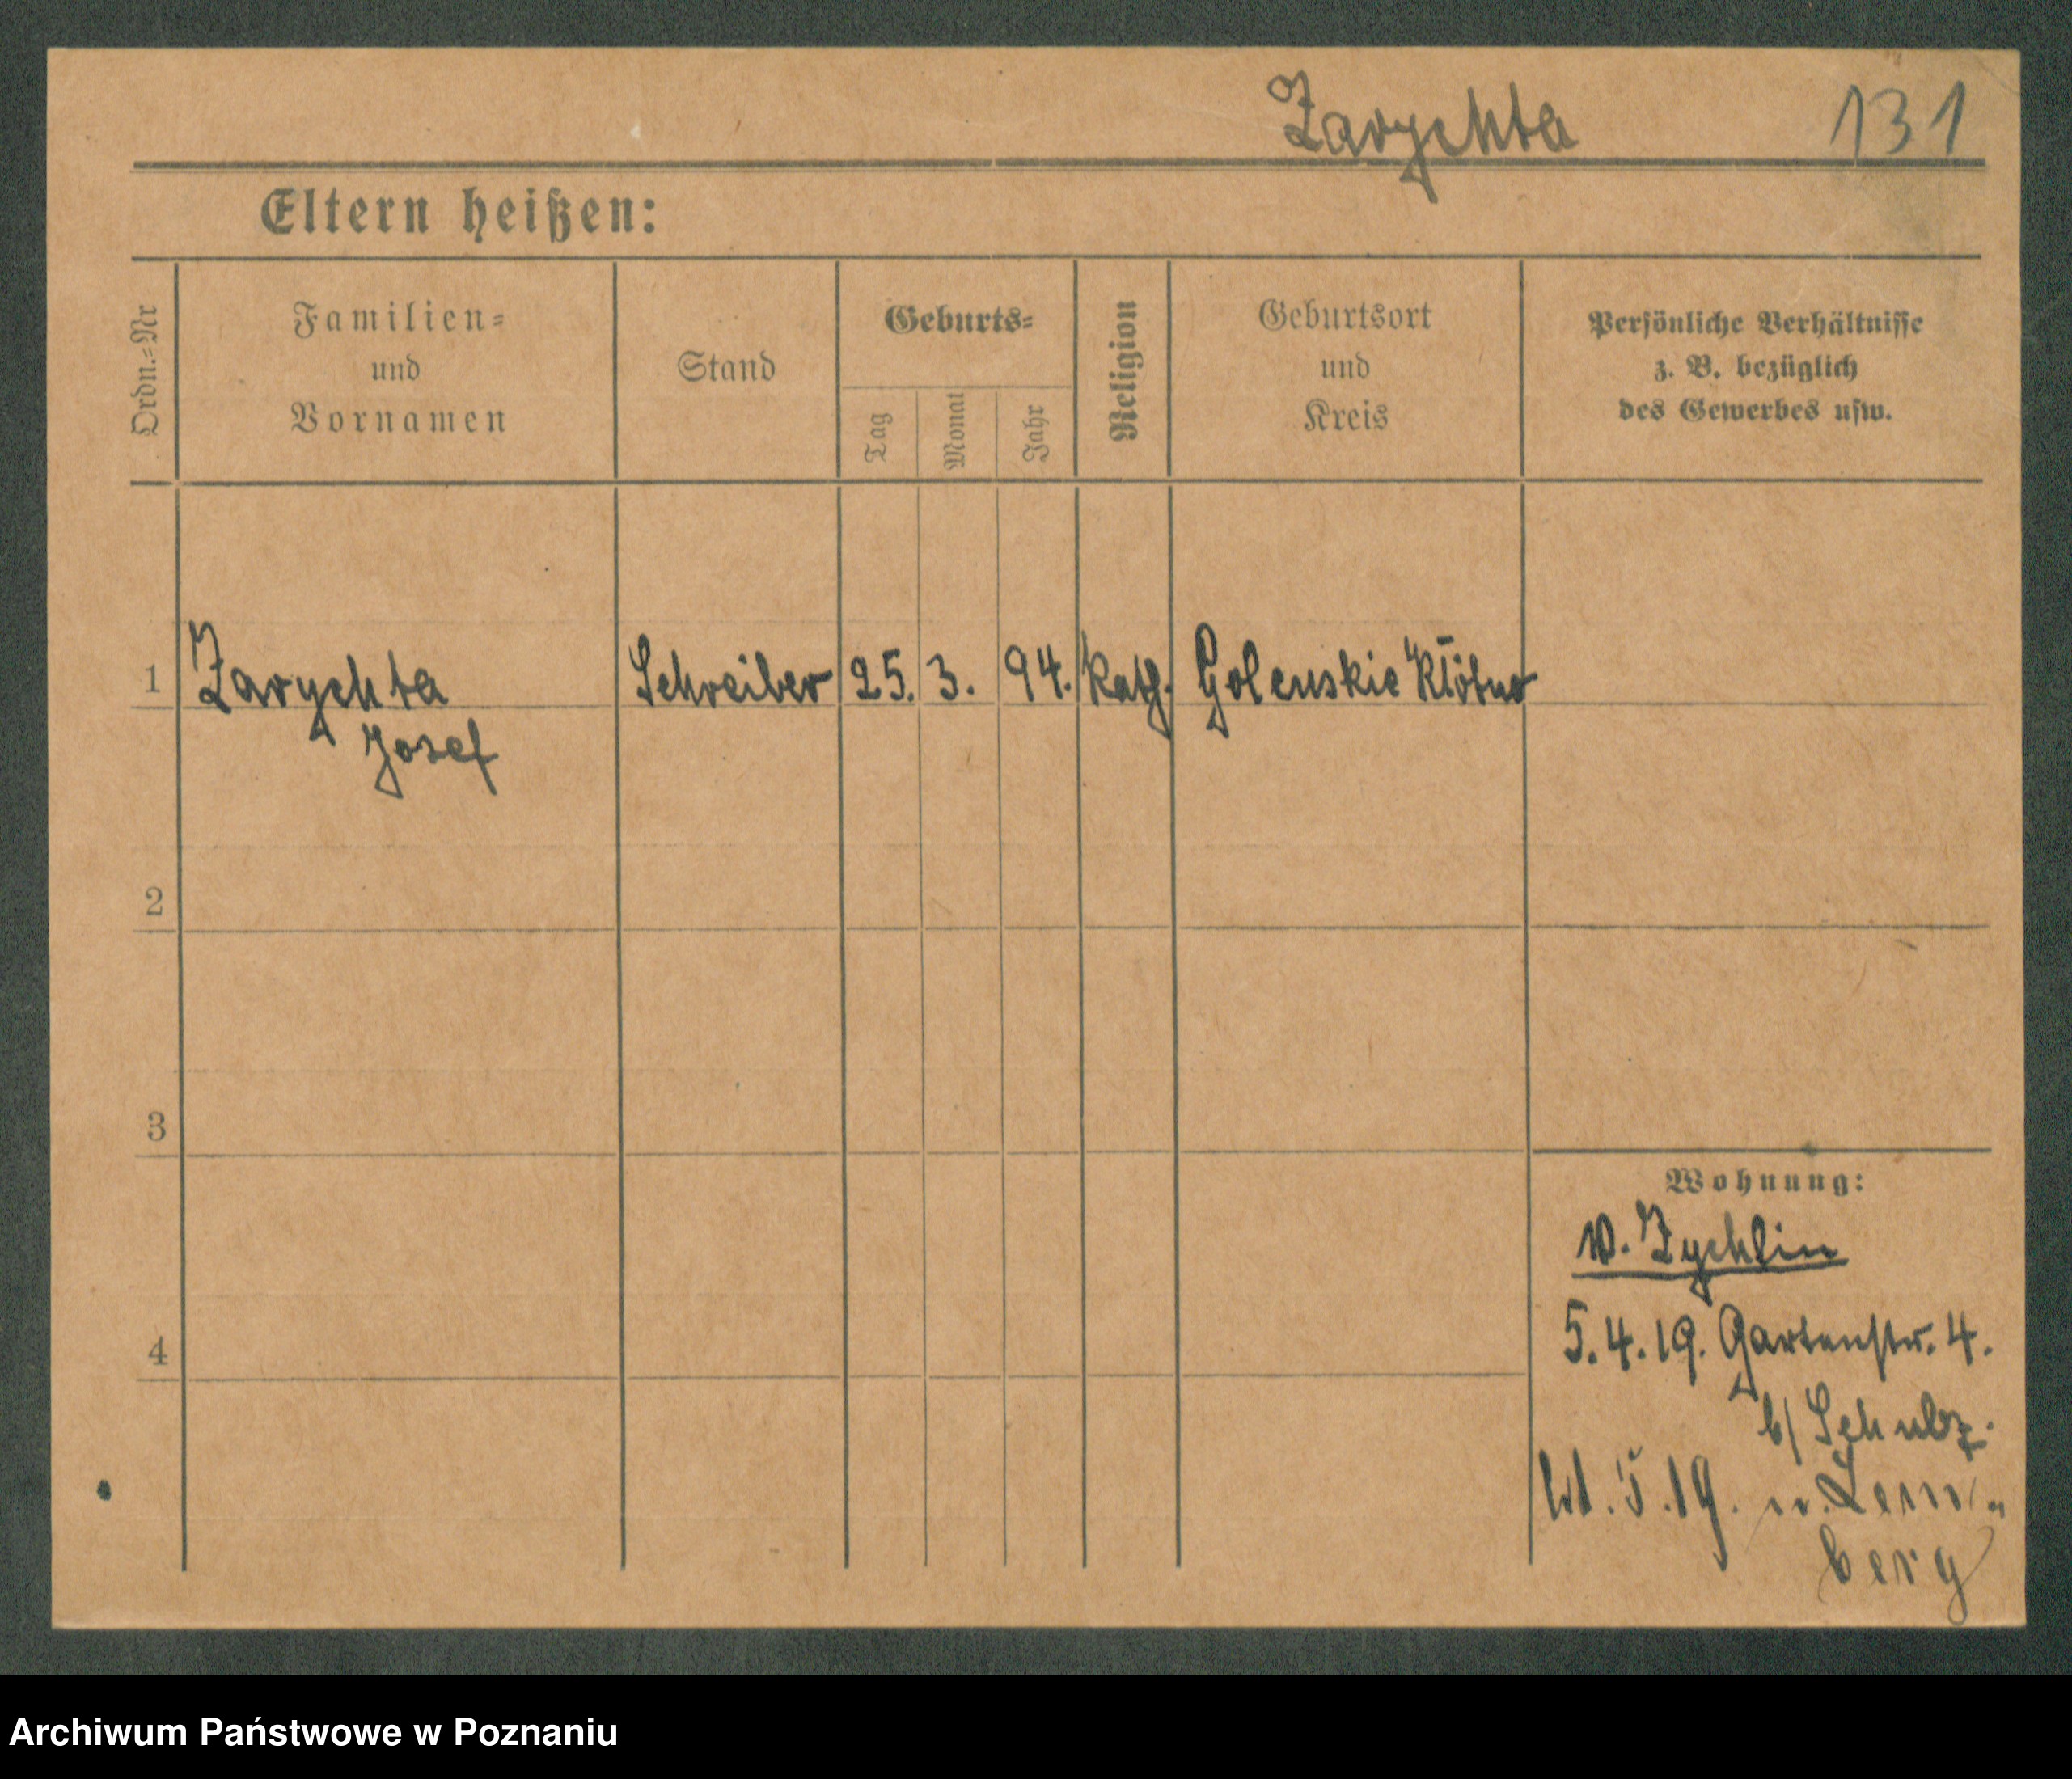 Zarychta 131
Eltern heißen:
Ordn.-Nr
Familien-
und
Vornamen
Stand
Geburts-
Tag
Monat
Jahr
Religion
Geburtsort
und
Kreis
Persönliche Verhältnisse
z. B. bezüglich
des Gewerbes usw.
1 Zarychta Schreiber 25. 3. 94. kath. Golenskie
Josef
2
3
4
Wohnung:
v. Zychlin
5.4.19. Gartenstr. 4.
b/ Schulz.
5.19. n. Lem-
berg
Archiwum Państwowe w Poznaniu